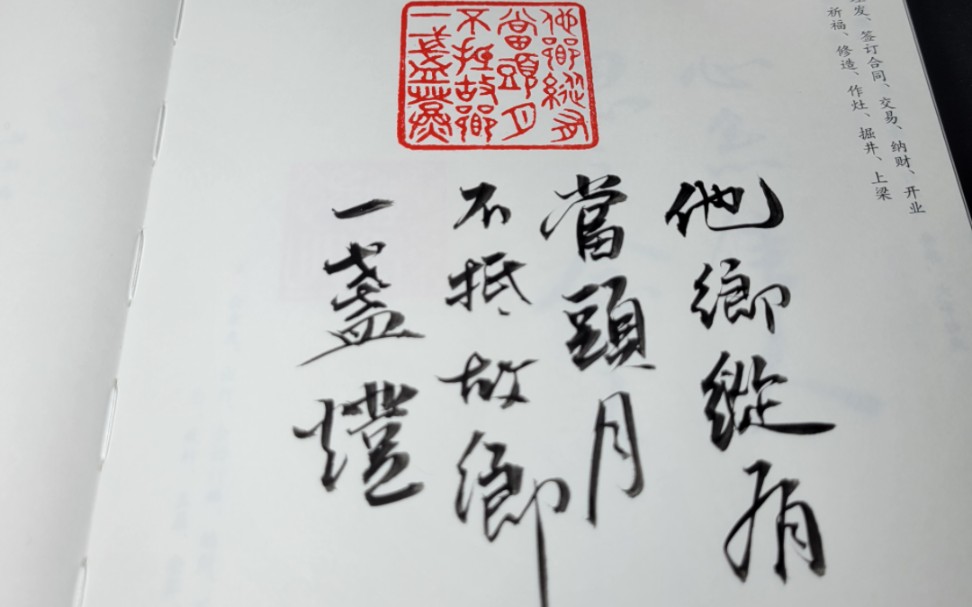 发、签订合同、交易、纳财、开业
祈福、修造、作灶、掘井、上梁
他鄉縱有
當頭月
不抵故鄉
一盞燈
他鄉縱有
當頭月
不抵故鄉
一盞燈